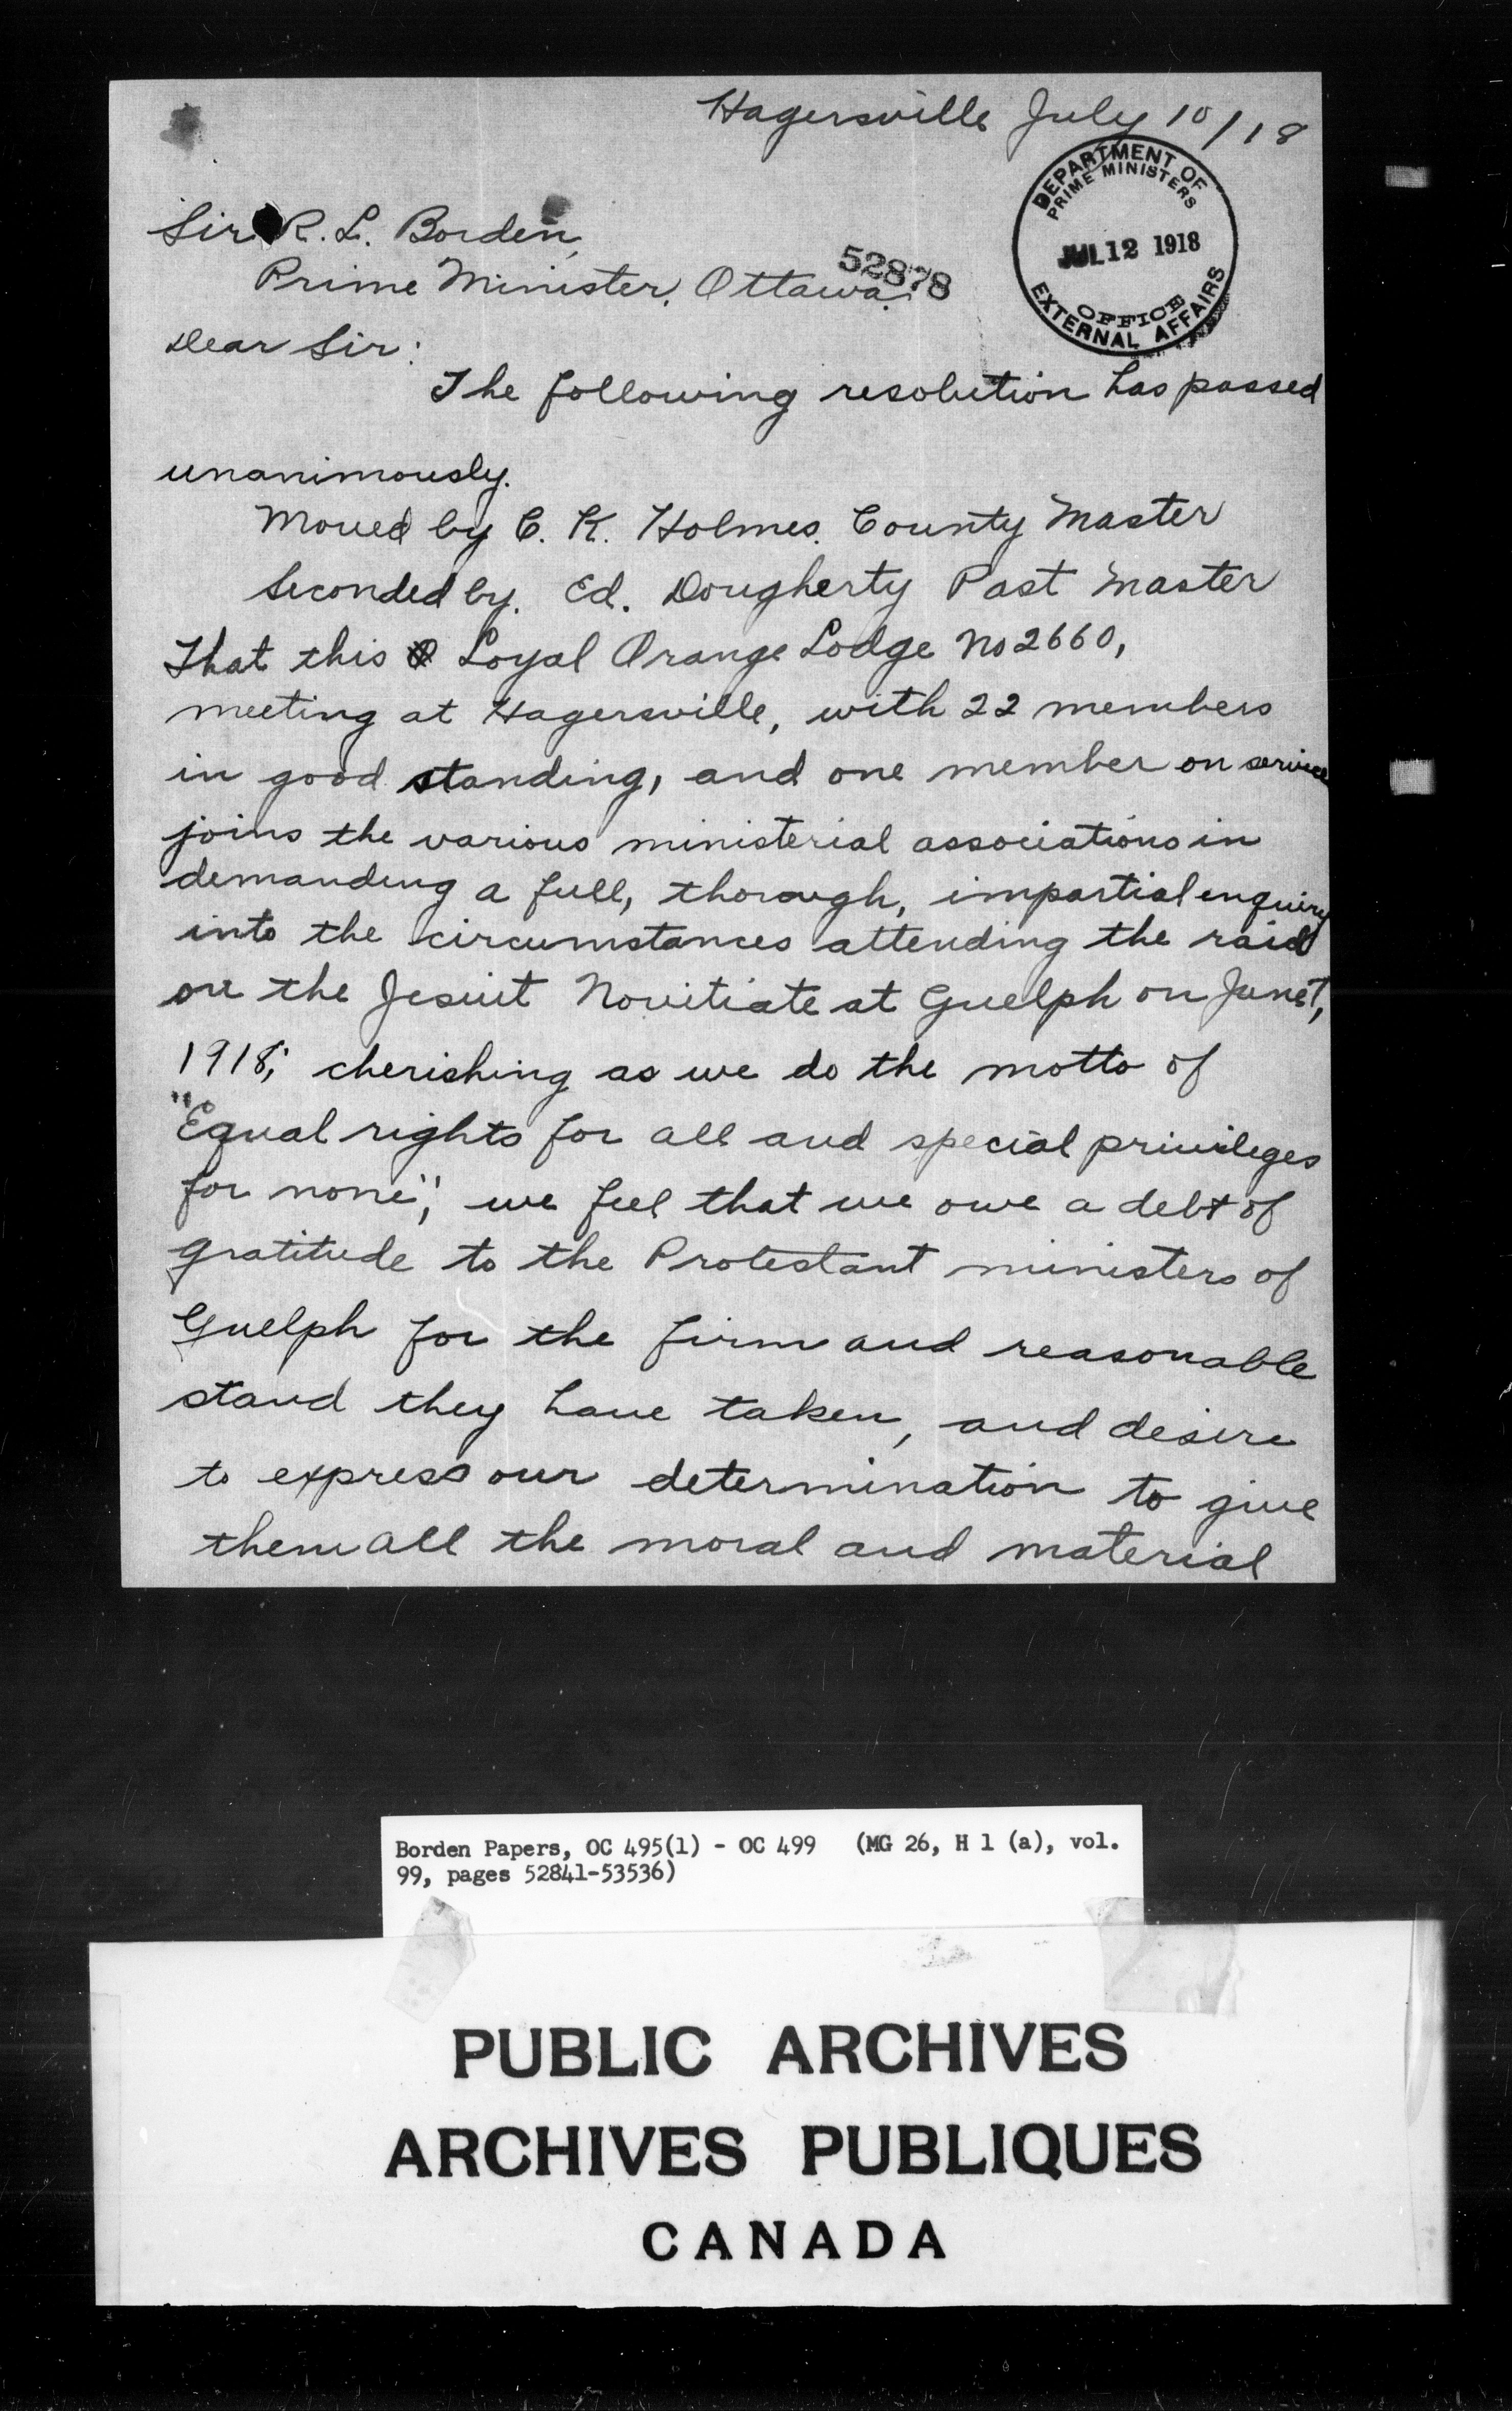 Hagersville July 10/18
DEPARTMENT OF
PRIME MINISTERS
JUL 12 1918
OFFICE
EXTERNAL AFFAIRS
Sir R. L. Borden,
52878
Prime Minister, Ottawa.
Dear Sir:
The following resolution has passed
unanimously.
Moved by C. K. Holmes. County Master
Seconded by. Ed. Dougherty Past Master
That this Loyal Orange Lodge No 2660,
meeting at Hagersville, with 22 members
in good standing, and one member on service
joins the various ministerial associations in
demanding a full, thorough, impartial enquiry
into the circumstances attending the raid
on the Jesuit Novitiate at Guelph on June 7,
1918; cherishing as we do the motto of
"Equal rights for all and special privileges
for none", we feel that we owe a debt of
gratitude to the Protestant ministers of
Guelph for the firm and reasonable
stand they have taken, and desire
to express our determination to give
them all the moral and material
Borden Papers, OC 495(1) - OC 499 (MG 26, H 1 (a), vol.
99, pages 52841-53536)
PUBLIC ARCHIVES
ARCHIVES PUBLIQUES
CANADA